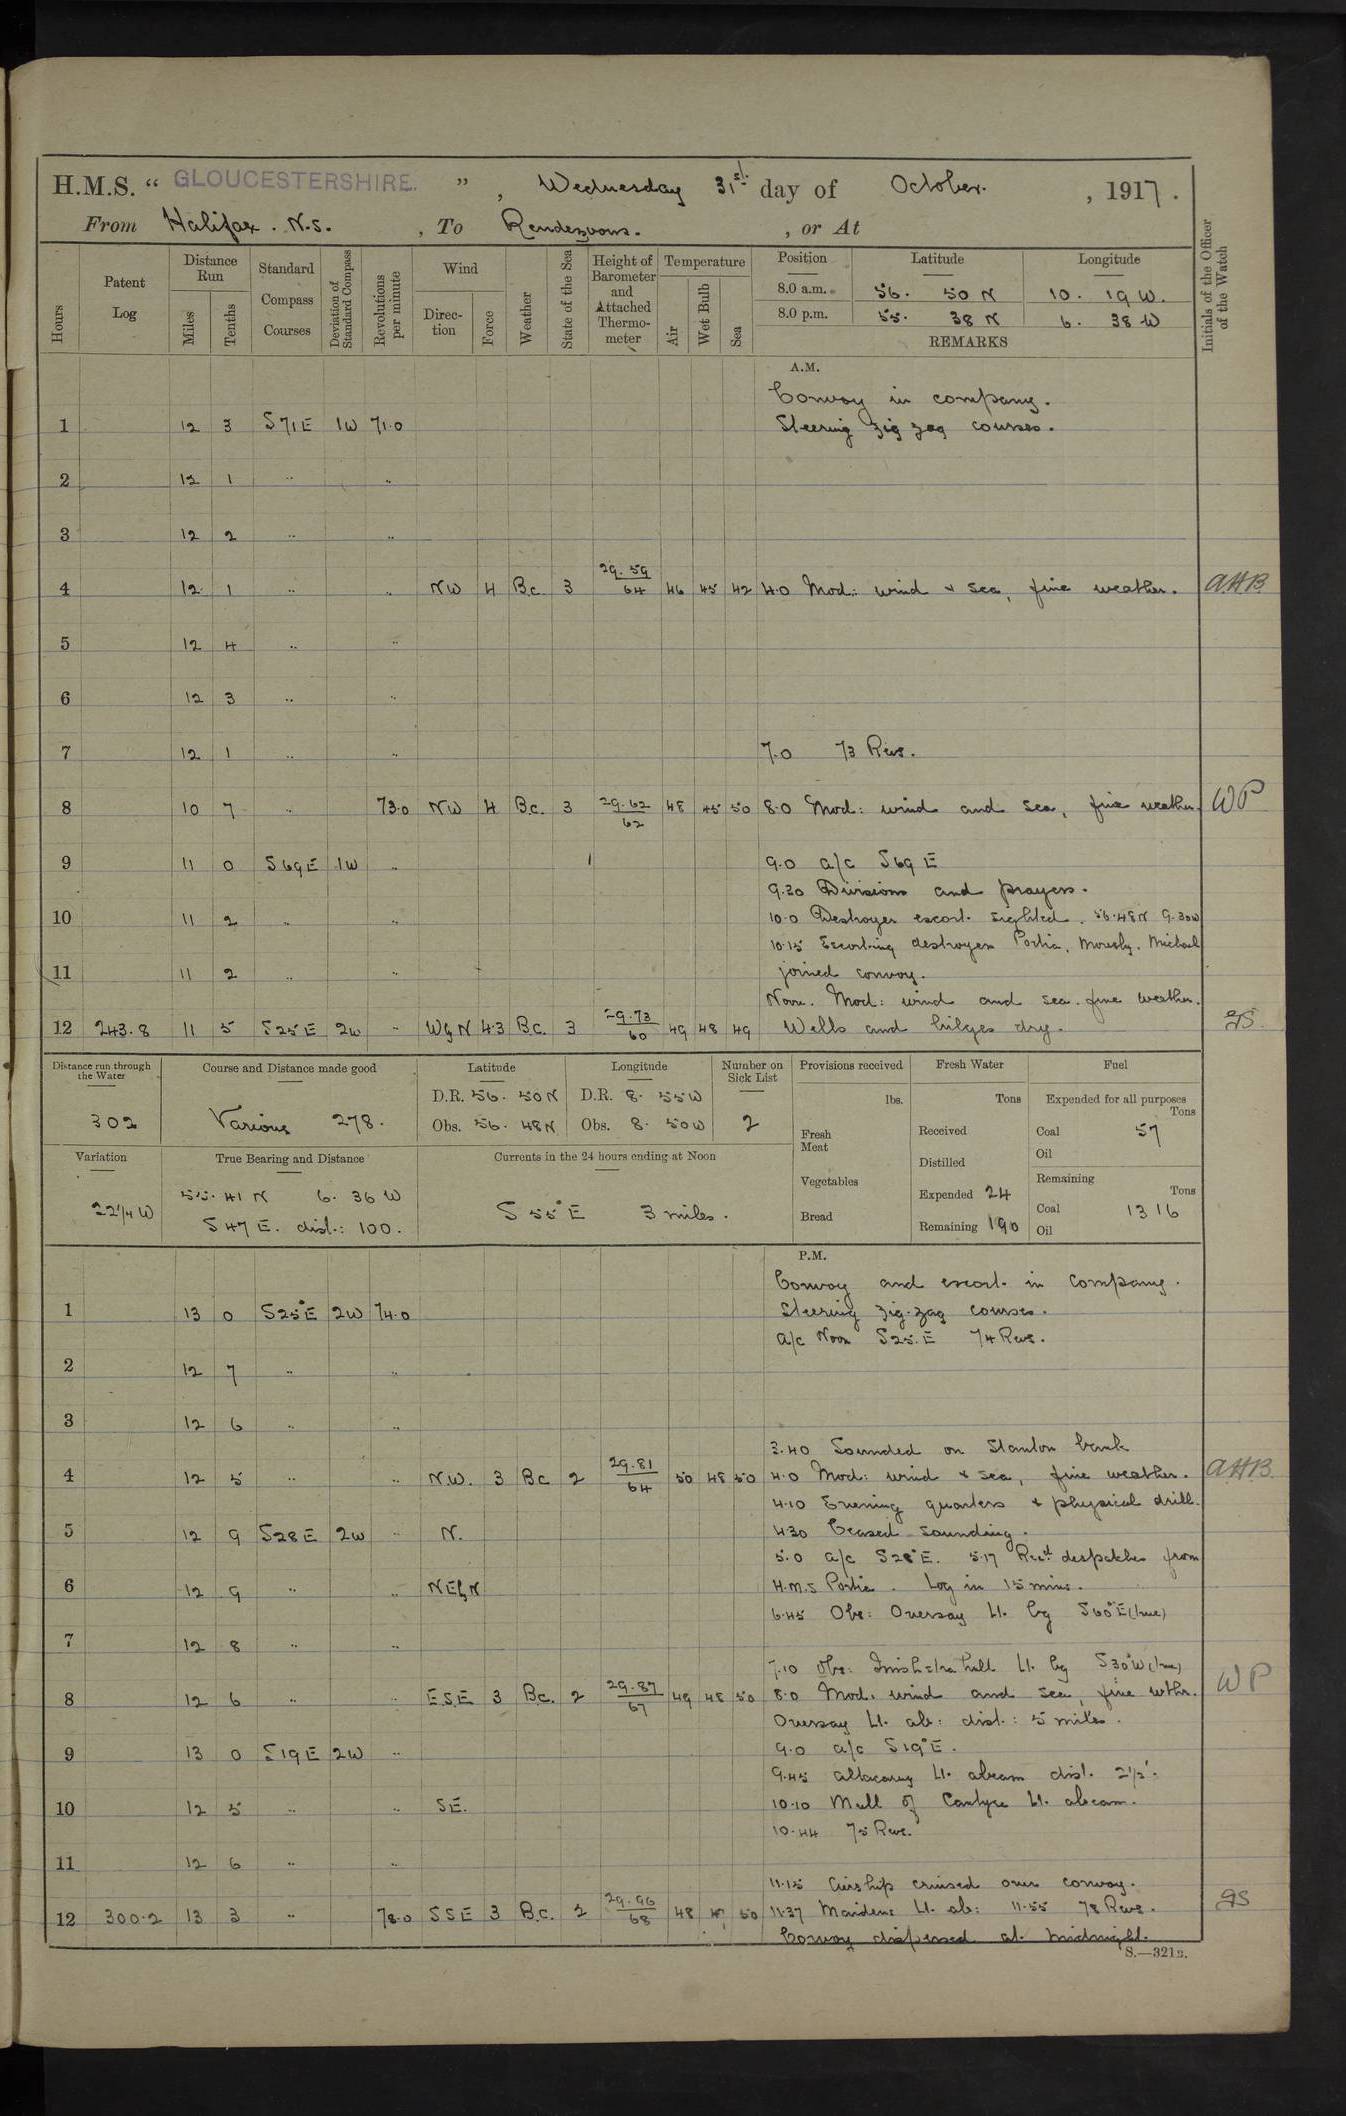 H.M.S. “ GLOUCESTERSHIRE. ” , Wednesday 31st day of October. , 1917.
From Halifax. N.S. , To Rendezvous. , or At
Hours
Patent Log
Distance Run
Miles
Tenths
Standard Compass Courses
Deviation of Standard Compass
Revolutions per minute
Wind
Direction
Force
Weather
State of the Sea
Height of Barometer and Attached Thermometer
Temperature
Air
Wet Bulb
Sea
Position Latitude Longitude
8.0 a.m. 56. 50 N 10. 19 W.
8.0 p.m. 55. 38 N 6. 38 W
REMARKS
Initials of the Officer of the Watch
A.M.
Convoy in company.
1 12 3 S 71 E 1W 71.0 Steering zig zag courses.
2 12 1 " "
3 12 2 " "
4 12 1 " " NW 4 Bc. 3 29.59/64 46 45 42 4.0 Mod: wind & sea, fine weather. AHB.
5 12 4 " "
6 12 3 " "
7 12 1 " " 7.0 73 Revs.
8 10 7 " 73.0 NW 4 B.c. 3 29.62/62 48 45 50 8.0 Mod: wind and sea, fine weather. WP
9 11 0 S 69 E 1W " 9.0 a/c S 69 E
9.30 Divisions and prayers.
10 11 2 " " 10.0 Destroyer escort sighted. 56.48N 9.30W
10.15 Escorting destroyers Portia, Mounsey, Michael
11 11 2 " " joined convoy.
Noon. Mod: wind and sea. fine weather.
12 243.8 11 5 S 25 E 2W " W by N 4.3 B.c. 3 29.73/60 49 48 49 Wells and bilges dry. gS.
Distance run through the Water
302
Course and Distance made good
Various 278.
Latitude
D.R. 56. 50 N
Obs. 56. 48 N
Longitude
D.R. 8. 55 W
Obs. 8. 50 W
Number on Sick List
2
Provisions received
lbs.
Fresh Meat
Vegetables
Bread
Fresh Water
Tons
Received
Distilled
Expended 24
Remaining 190
Fuel
Expended for all purposes
Tons
Coal 57
Oil
Remaining
Tons
Coal 1316
Oil
Variation
22¼ W
True Bearing and Distance
55. 41 N 6. 36 W
S 47 E. dist: 100.
Currents in the 24 hours ending at Noon
S 55° E 3 miles.
P.M.
Convoy and escort in company.
1 13 0 S 25° E 2W 74.0 Steering zig-zag courses.
a/c Noon S 25. E 74 Revs.
2 12 7 " "
3 12 6 " "
3.40 Sounded on Stanton bank
4 12 5 " " N.W. 3 Bc 2 29.81/64 50 48 50 4.0 Mod: wind & sea, fine weather. AHB.
4.10 Evening quarters & physical drill.
5 12 9 S 28 E 2W " N. 4.30 Ceased sounding.
5.0 a/c S 28° E. 5.17 Recd despatches from
6 12 9 " " NE by N H.M.S Portia. Log in 15 mins.
6.45 Obs: Oversay Lt. bg S 60° E (true)
7 12 8 " "
7.10 Obs: Inishtrahull Lt. bg S 30° W (true)
8 12 6 " " E.S.E 3 B.c. 2 29.87/67 49 48 50 8.0 Mod. wind and sea, fine wthr. WP
Oversay Lt. ab: dist: 5 miles.
9 13 0 S 19 E 2W " 9.0 a/c S 19° E.
9.45 Altacarry Lt. abeam dist. 2½'.
10 12 5 " " SE. 10.10 Mull of Cantyre Lt. abeam.
10.44 75 Revs.
11 12 6 " "
11.15 Airship cruised over convoy.
12 300.2 13 3 " 78.0 SSE 3 B.c. 2 29.96/68 48 47 50 11.37 Maidens Lt. ab: 11.55 78 Revs. gS
Convoy dispersed at midnight.
S.—321B.